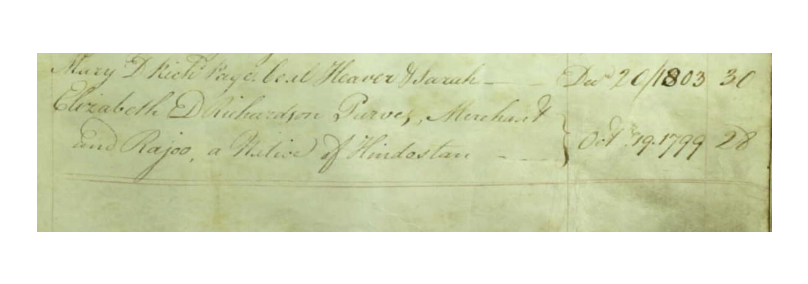 Mary D Rich Page Coal Heaver & Sarah - - Dec 20/1803 30
Elizabeth D Richardson Purves, Merchant
and Rajoo, a Native of Hindostan - - } Oct 19. 1799 28